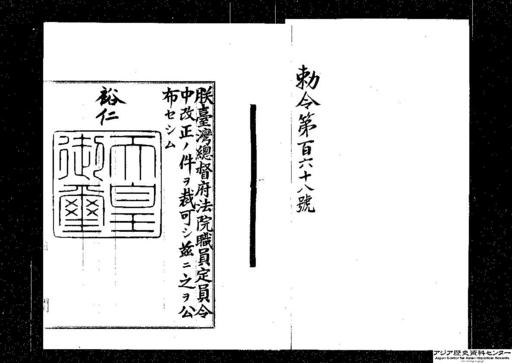 勅令第百六十八號
朕臺灣總督府法院職員定員令
中改正ノ件ヲ裁可シ茲ニ之ヲ公
布セシム
裕仁
天皇
御璽
アジア歴史資料センター
Japan Center for Asian Historical Records